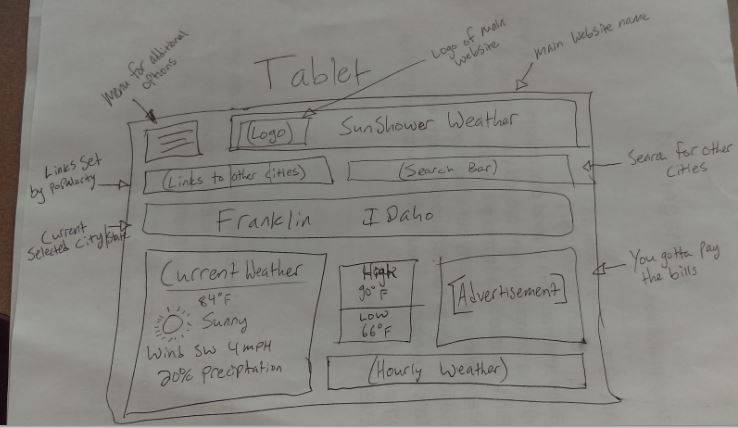 Tablet
Menu for additional
options
Logo of main
website
main website name
(Logo)
SunShower Weather
Links Set
by Popularity
(Links to other cities)
(Search Bar)
Search for other
cities
Current
Selected City/State
Franklin IDaho
Current Weather
84°F
Sunny
Wins SW 4 mPH
20% Preciptation
High
90°F
Low
66°F
[Advertisement]
You gotta pay
the bills
(Hourly Weather)